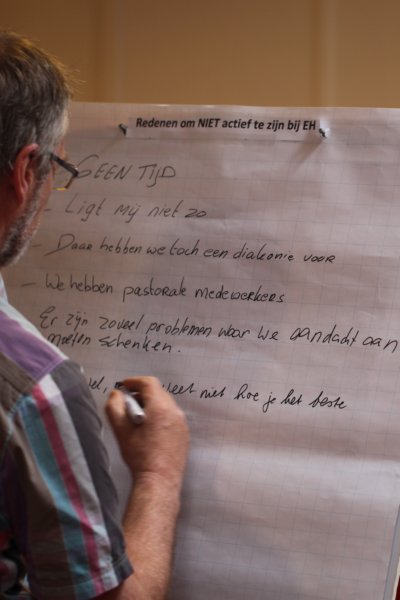 Redenen om NIET actief te zijn bij EH
GEEN TIJD
- Ligt mij niet zo
- Daar hebben we toch een diakonie voor
- We hebben pastorale medewerkers
Er zijn zoveel problemen waar we aandacht aan
moeten schenken.
weet niet hoe je het beste